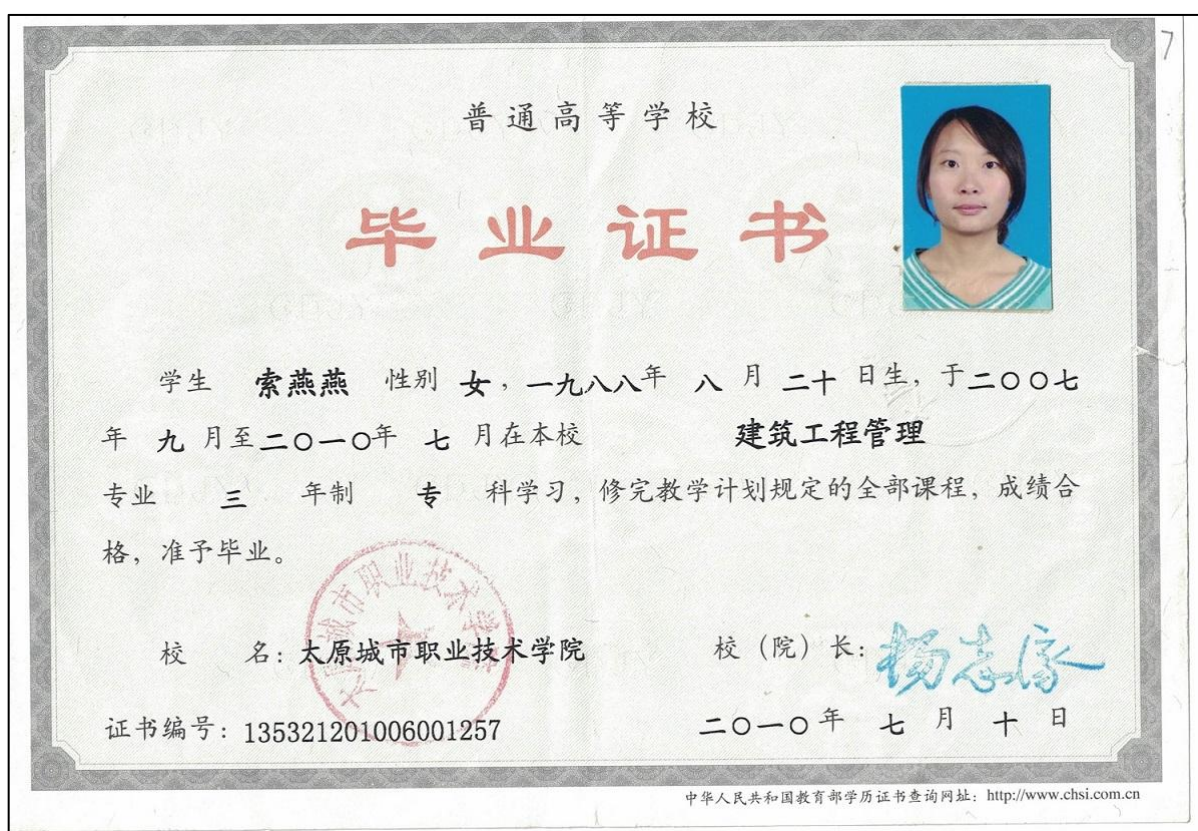 7
普通高等学校
毕业证书
学生 索燕燕 性别 女，一九八八年 八 月 二十 日生，于二〇〇七
年 九 月至二〇一〇年 七 月在本校 建筑工程管理
专业 三 年制 专 科学习，修完教学计划规定的全部课程，成绩合
格，准予毕业。
太原城市职业技术学院
校 名：太原城市职业技术学院 校（院）长：
证书编号：135321201006001257 二〇一〇年 七 月 十 日
中华人民共和国教育部学历证书查询网址：http://www.chsi.com.cn